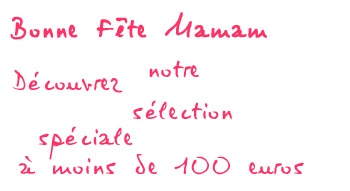 Bonne Fête Mamam
Découvrez notre
sélection
spéciale
à moins de 100 euros